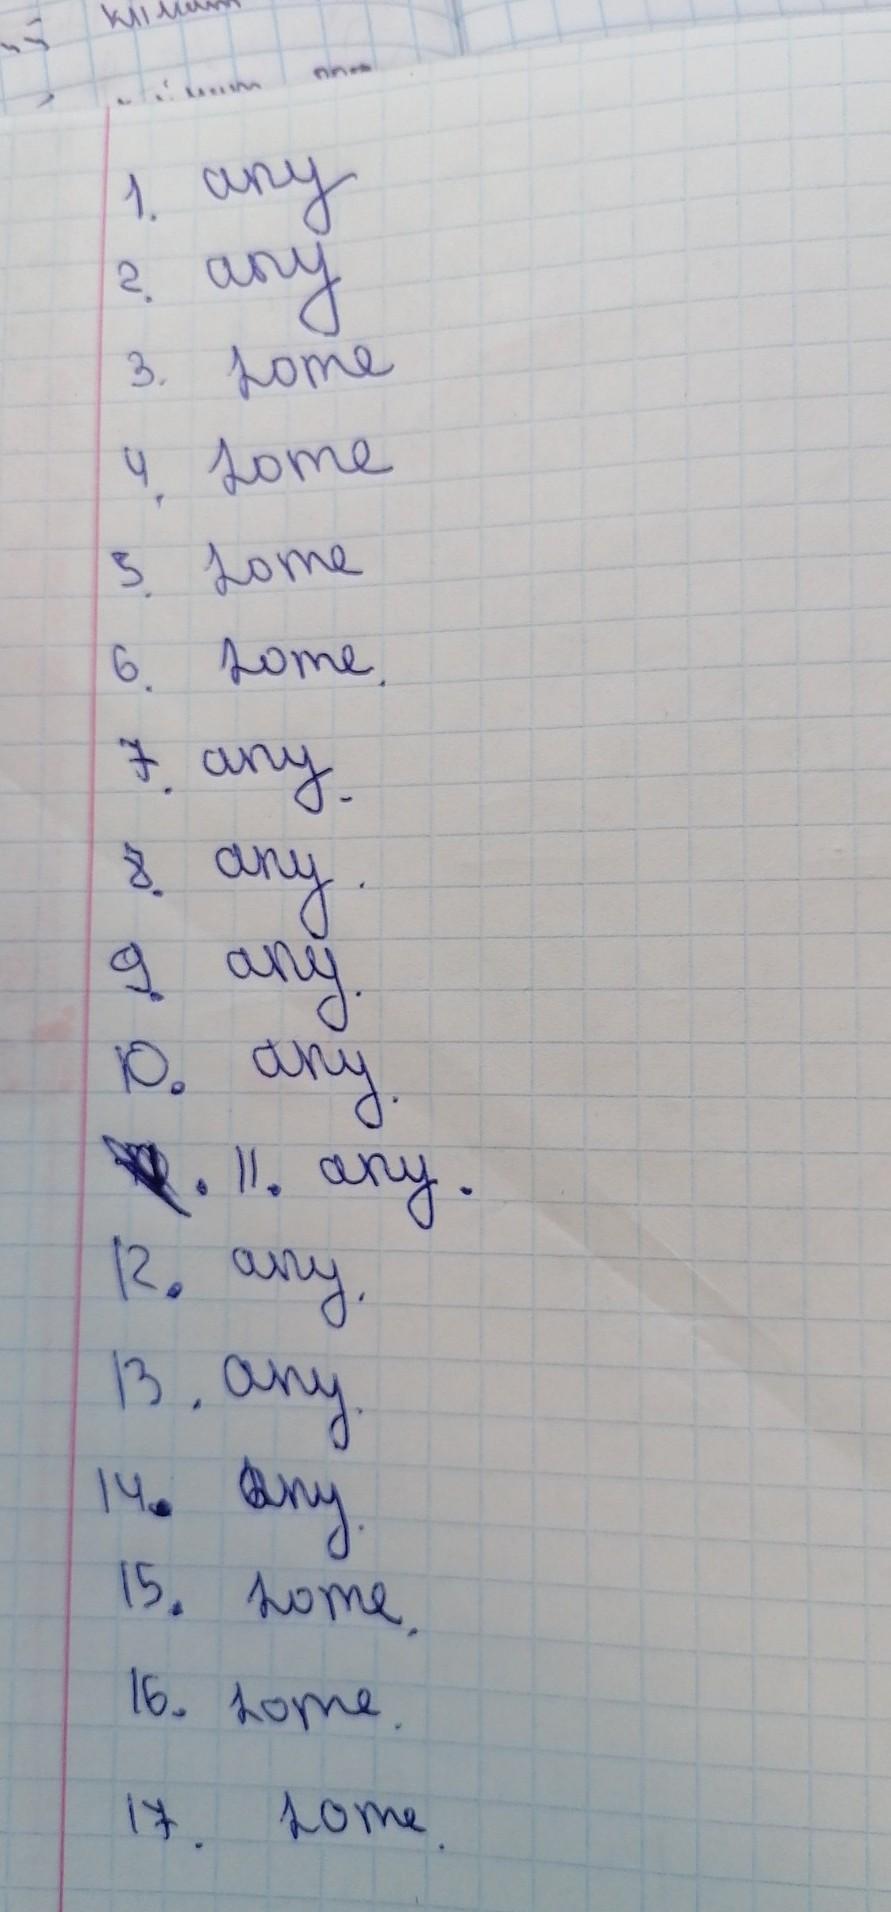 клімат
1. any
2. any
3. some
4. some
5. some
6. some.
7. any.
8. any.
9. any.
10. any.
. 11. any.
12. any.
13. any.
14. any.
15. some.
16. some.
17. some.